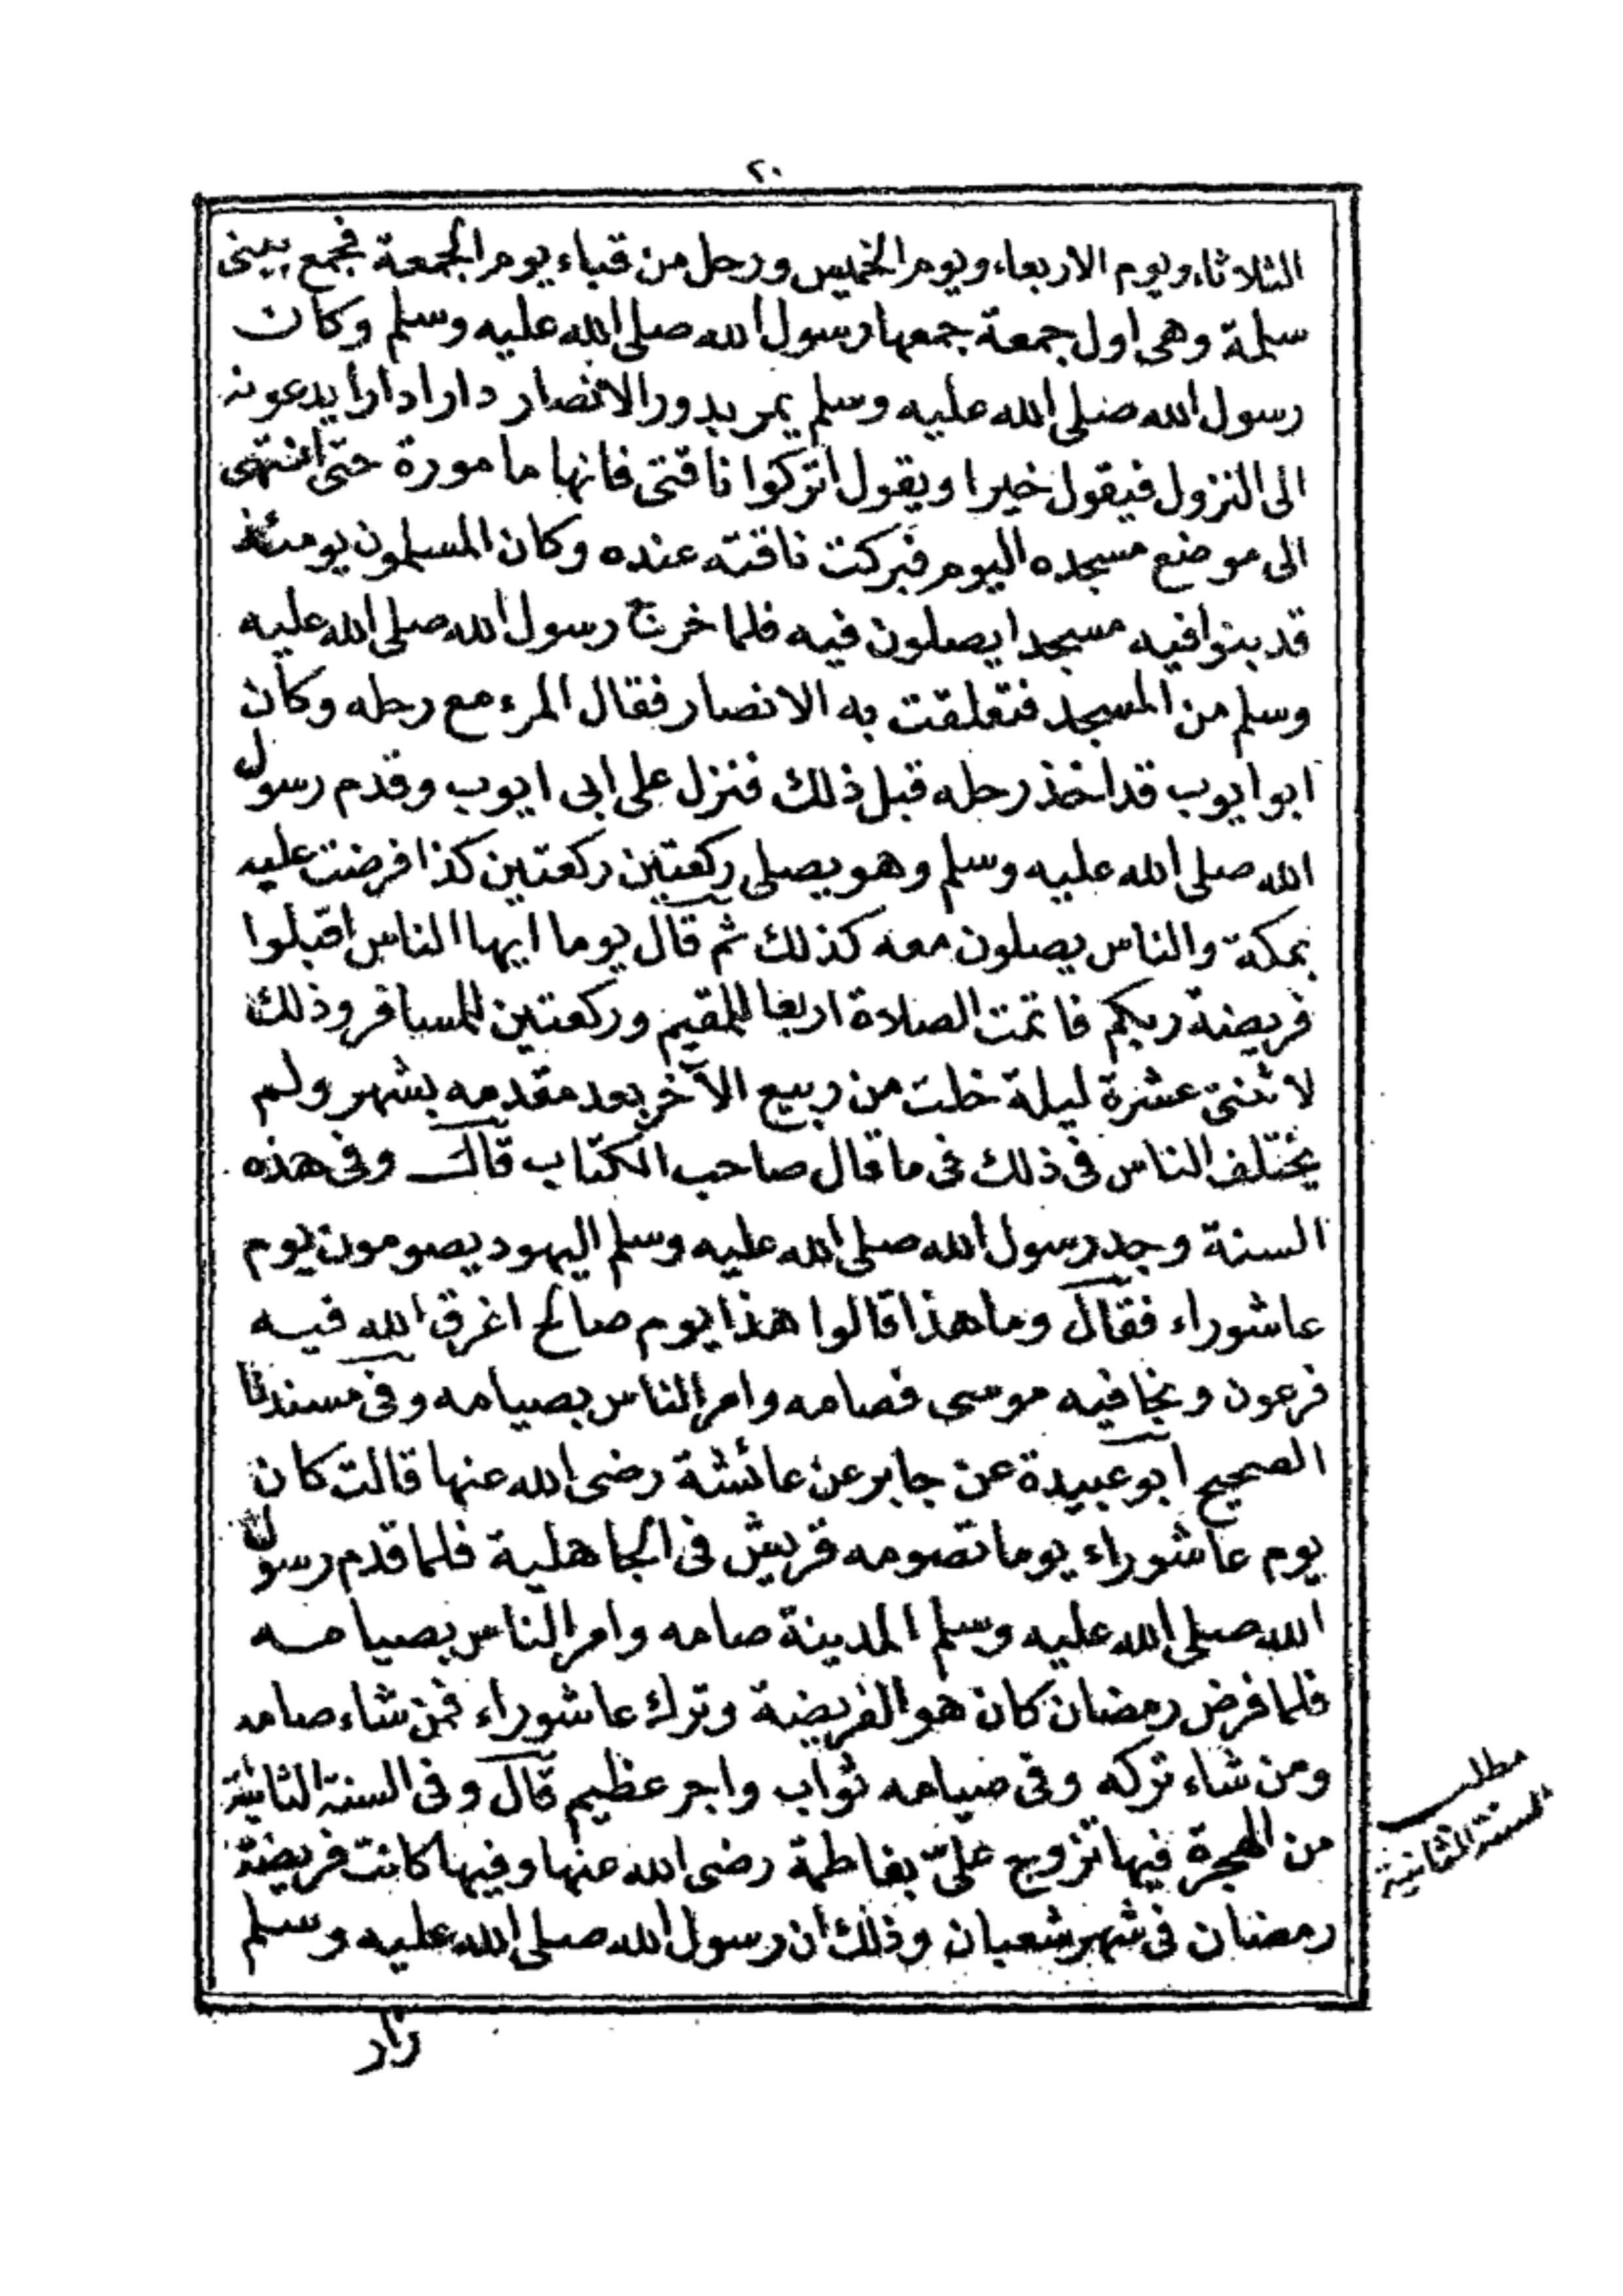 ٢٠
الثلاثاء ويوم الاربعاء ويوم الخميس ورحل من قباء يوم الجمعة فجمع ببنى
سلمة وهى اول جمعة جمعها رسول الله صلى الله عليه وسلم وكان
رسول الله صلى الله عليه وسلم يمر بدور الانصار دارا دارا يدعونه
الى النزول فيقول خيرا ويقول اتركوا ناقتى فانها مامورة حتى انتهى
الى موضع مسجده اليوم فبركت ناقته عنده وكان المسلمون يومئذ
قد بنوا فيه مسجدا يصلون فيه فلما خرج رسول الله صلى الله عليه
وسلم من المسجد فتعلقت به الانصار فقال المرء مع رحله وكان
ابو ايوب قد اخذ رحله قبل ذلك فنزل على ابى ايوب وقدم رسول
الله صلى الله عليه وسلم وهو يصلى ركعتين ركعتين كذا فرضت عليه
بمكة والناس يصلون معه كذلك ثم قال يوما ايها الناس اقبلوا
فريضة ربكم فاتمت الصلاة اربعا للمقيم وركعتين للمسافر وذلك
لاثنتى عشرة ليلة خلت من ربيع الآخر بعد مقدمه بشهر ولم
يختلف الناس فى ذلك فى ما قال صاحب الكتاب قال وفى هذه
السنة وجد رسول الله صلى الله عليه وسلم اليهود يصومون يوم
عاشوراء فقال وما هذا قالوا هذا يوم صالح اغرق الله فيه
فرعون ونجا فيه موسى فصامه وامر الناس بصيامه وفى مسندنا
الصحيح ابو عبيدة عن جابر عن عائشة رضى الله عنها قالت كان
يوم عاشوراء يوما تصومه قريش فى الجاهلية فلما قدم رسول
الله صلى الله عليه وسلم المدينة صامه وامر الناس بصيامه
فلما فرض رمضان كان هو الفريضة وترك عاشوراء فمن شاء صامه
ومن شاء تركه وفى صيامه ثواب واجر عظيم قال وفى السنة الثانية
من الهجرة فيها تزوج علىّ بفاطمة رضى الله عنها وفيها كانت فريضة
رمضان فى شهر شعبان وذلك ان رسول الله صلى الله عليه وسلم
مطلب
السنة الثانية